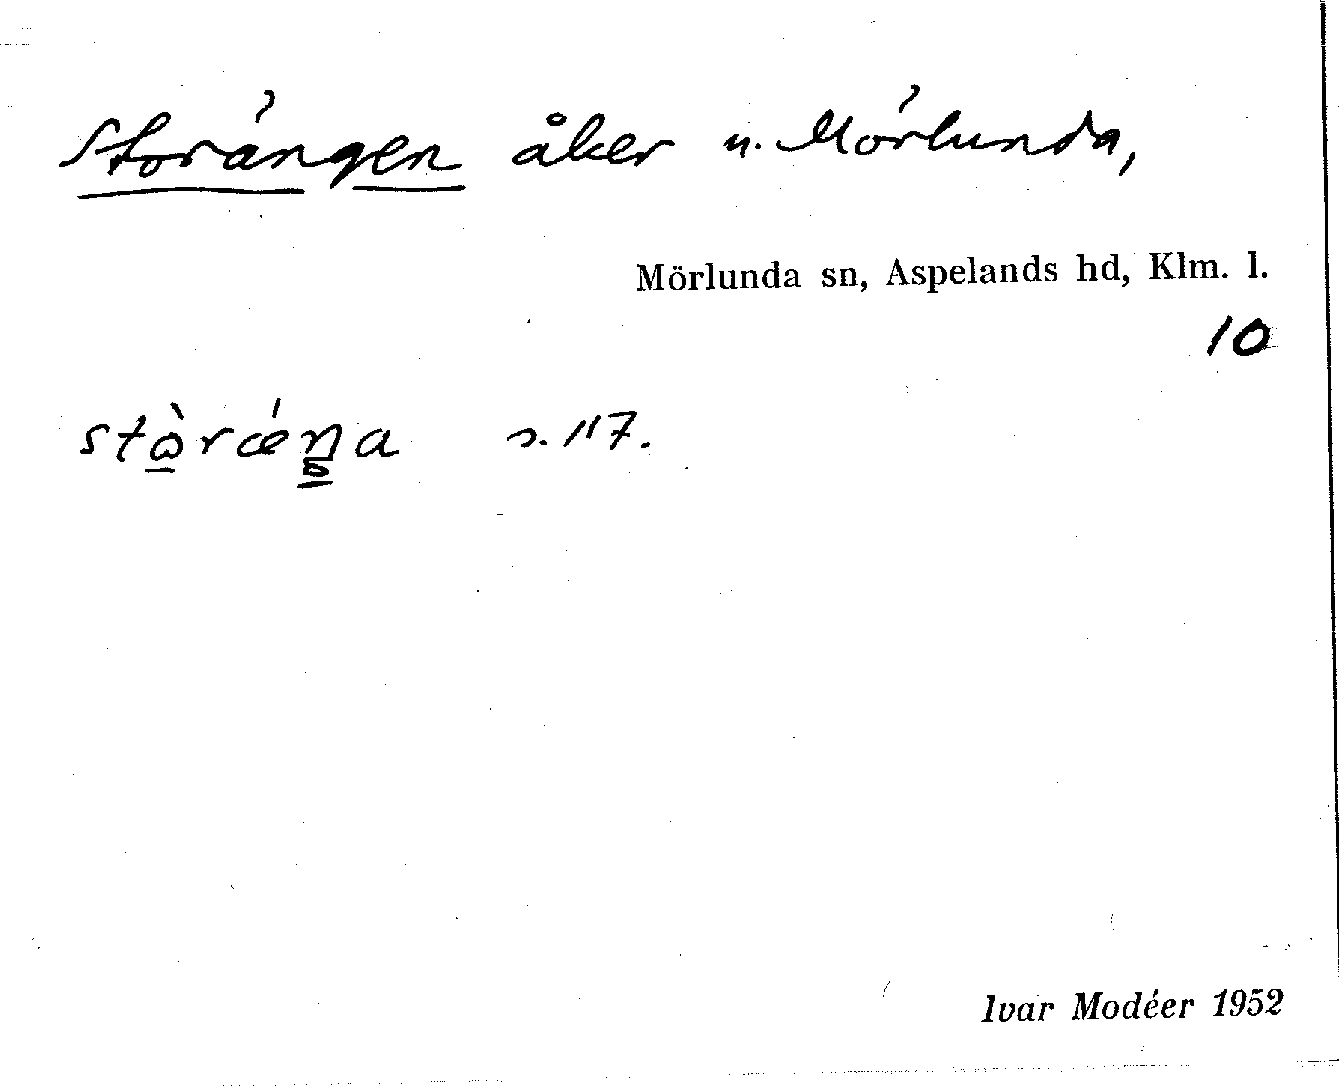 Storängen åker u. Mörlunda,
Mörlunda sn, Aspelands hd, Klm. l.
10
stòræ´ŋa s. 117.
Ivar Modéer 1952